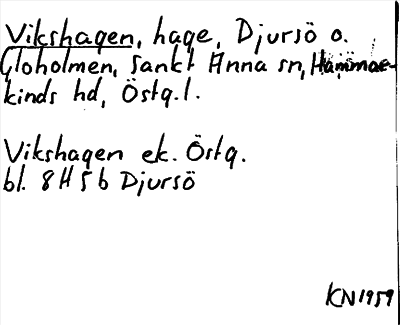 Vikshagen, hage, Djursö o.
Gloholmen, Sankt Anna sn, Hammar-
kinds hd, Östg.l.
Vikshagen ek. Östg.
bl. 8H5b Djursö
KN1959